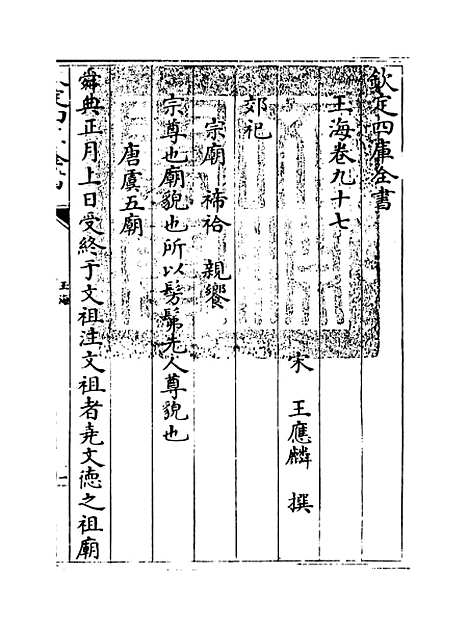 欽定四庫全書
玉海卷九十七
宋 王應麟 撰
郊祀
宗廟 禘祫 親饗
宗尊也廟貌也所以髣髴先人尊貌也
唐虞五廟
舜典正月上日受終于文祖注文祖者堯文德之祖廟
玉海